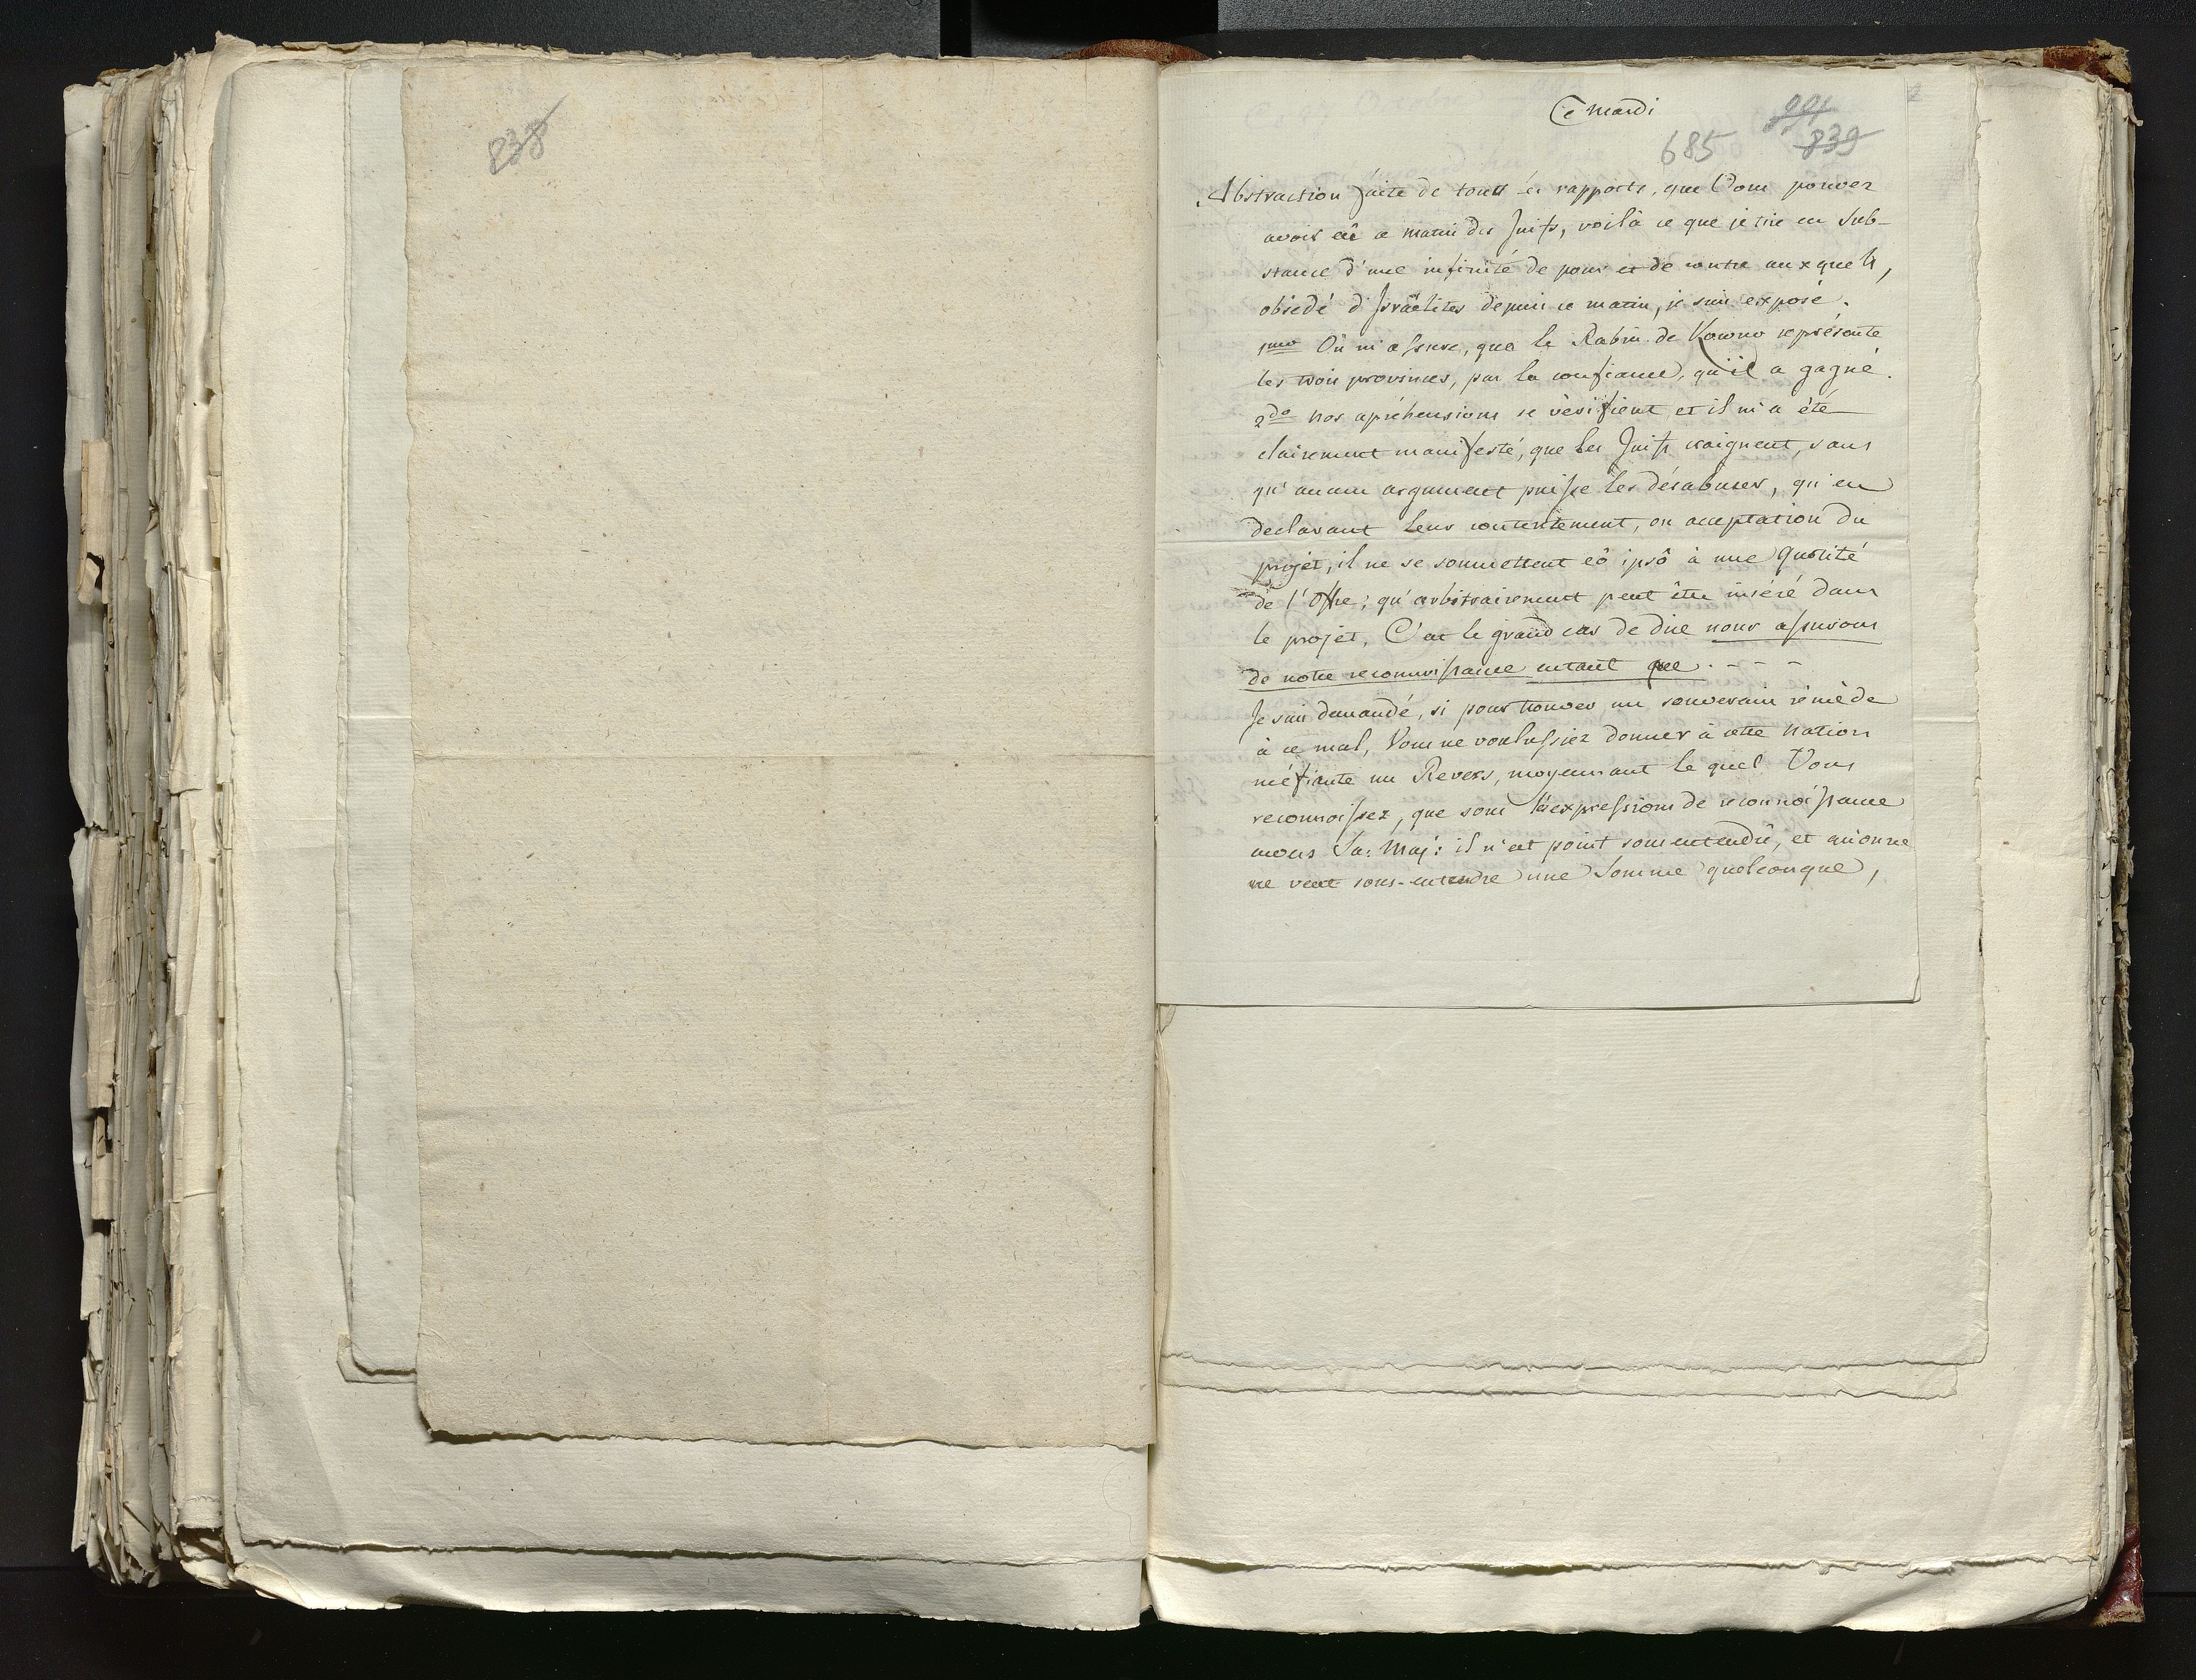 838
Ce mardi
991
685
839
Abstraction faite de touts les rapports, que Vous pouvez
avoir eû ce matin des Juifs, voilà ce que je tire en sub-
stance d'une infinité de pour et de contre auxquels,
obsedé d'Israëlites depuis ce matin, je suis exposé.
1mo On m'assure, que le Rabin de Kowno représente
les trois provinces, par la confiance, qu'il a gagné.
2do nos apréhensions se vèrifient et il m'a été
clairement manifesté, que les Juifs craignent, sans
qu'aucun argument puisse les désabuser, qu'en
declarant leur contentement, ou acceptation du
projet, il ne se soumettent eô ipsô à une quotité
de l'Offre; qu'arbitrairement peut être inséré dans
le projet. C'est le grand cas de dire nous assurons
de notre reconnoissance entant que . - - -
Je suis demandé, si pour trouver un souverain rémède
à ce mal, Vous ne voulussiez donner à cette nation
méfiante un Revers, moyennant le quel Vous
reconnoissez, que sous les expressions de reconnoissance
envers Sa: Maj: il n'est point sousentendû, et qu'on ne
ne veut sous-entendre une Somme quelconque,